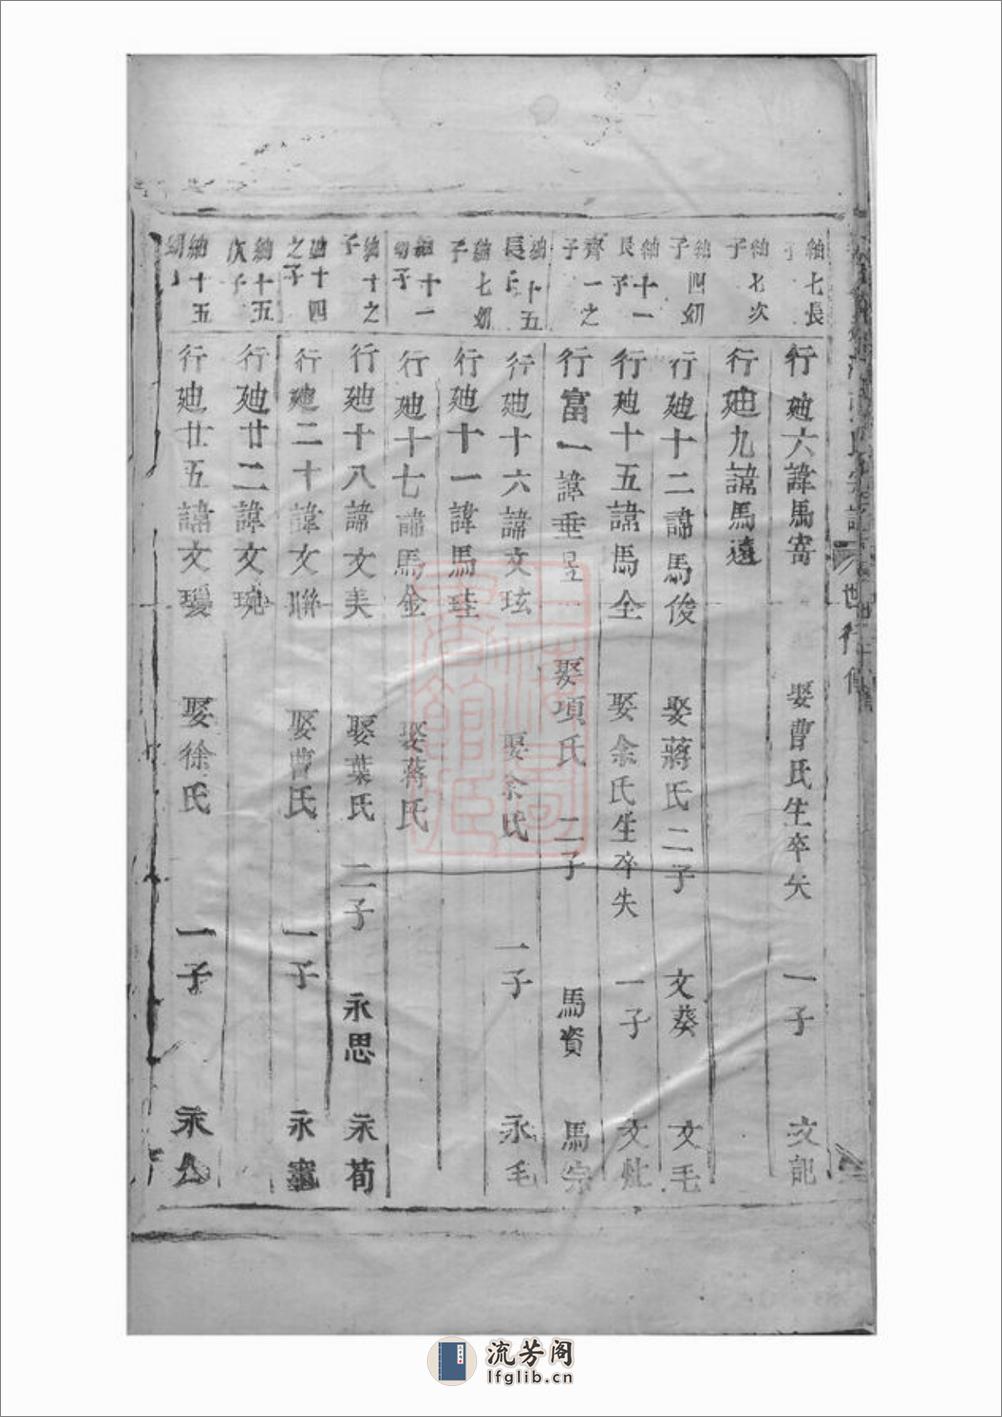 紬七長子
行廸六諱馬寄 娶曹氏生卒失 一子 文記
紬七次子
行廸九諱馬遠
紬四幼子
行廸十二諱馬俊 娶蔣氏二子 文葵 文毛
紬十一長子
行廸十五諱馬全 娶余氏生卒失 一子 文
齊一之子
行富一諱垂昱 娶項氏 二子 馬資 馬宗
紬十五長子
行廸十六諱文玹 娶余氏 一子 永毛
紬七幼子
行廸十一諱馬珪
紬十一幼子
行廸十七諱馬金 娶蔣氏
紬十之子
行廸十八諱文美 娶葉氏 二子 永思 永荀
紬十四之子
行廸二十諱文聯 娶曹氏 一子 永
紬十五次子
行廸廿二諱文琬
紬十五幼
行廸廿五諱文瑗 娶徐氏 一子 永公
世行傳
流芳阁
lfglib.cn